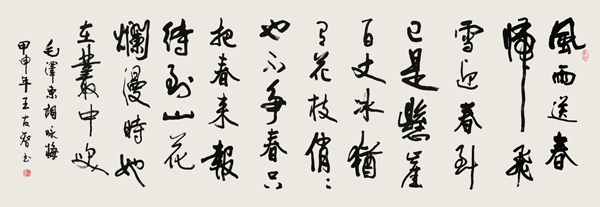 風雨送春
歸飛
雪迎春到
已是懸崖
百丈冰猶
有花枝俏〻
也不争春只
把春来報
待到山花
爛漫時她
在叢中笑
毛澤東詞咏梅
甲申年王友智书